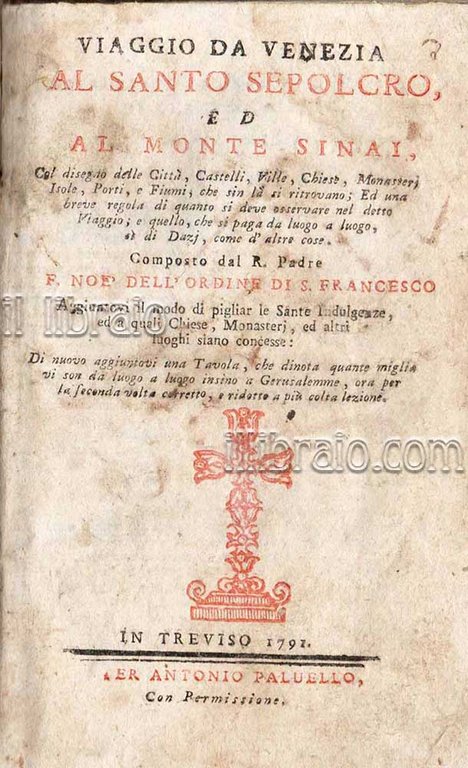 VIAGGIO DA VENEZIA
AL SANTO SEPOLCRO,
ED
AL MONTE SINAI,
Col disegno delle Città, Castelli, Ville, Chiese, Monasterj
Isole, Porti, e Fiumi, che sin là si ritrovano; Ed una
breve regola di quanto si deve osservare nel detto
Viaggio; e quello, che si paga da luogo a luogo,
sì di Dazj, come d'altre cose.
Composto dal R. Padre
F. NOE' DELL'ORDINE DI S. FRANCESCO
Aggiuntovi il modo di pigliar le Sante Indulgenze,
ed a quali Chiese, Monasterj, ed altri
luoghi siano concesse:
Di nuovo aggiuntovi una Tavola, che dinota quante miglia
vi son da luogo a luogo insino a Gerusalemme, ora per
la seconda volta corretto, e ridotto a più colta lezione.
il libraio
illibraio.com
IN TREVISO 1791.
PER ANTONIO PALUELLO,
Con Permissione.